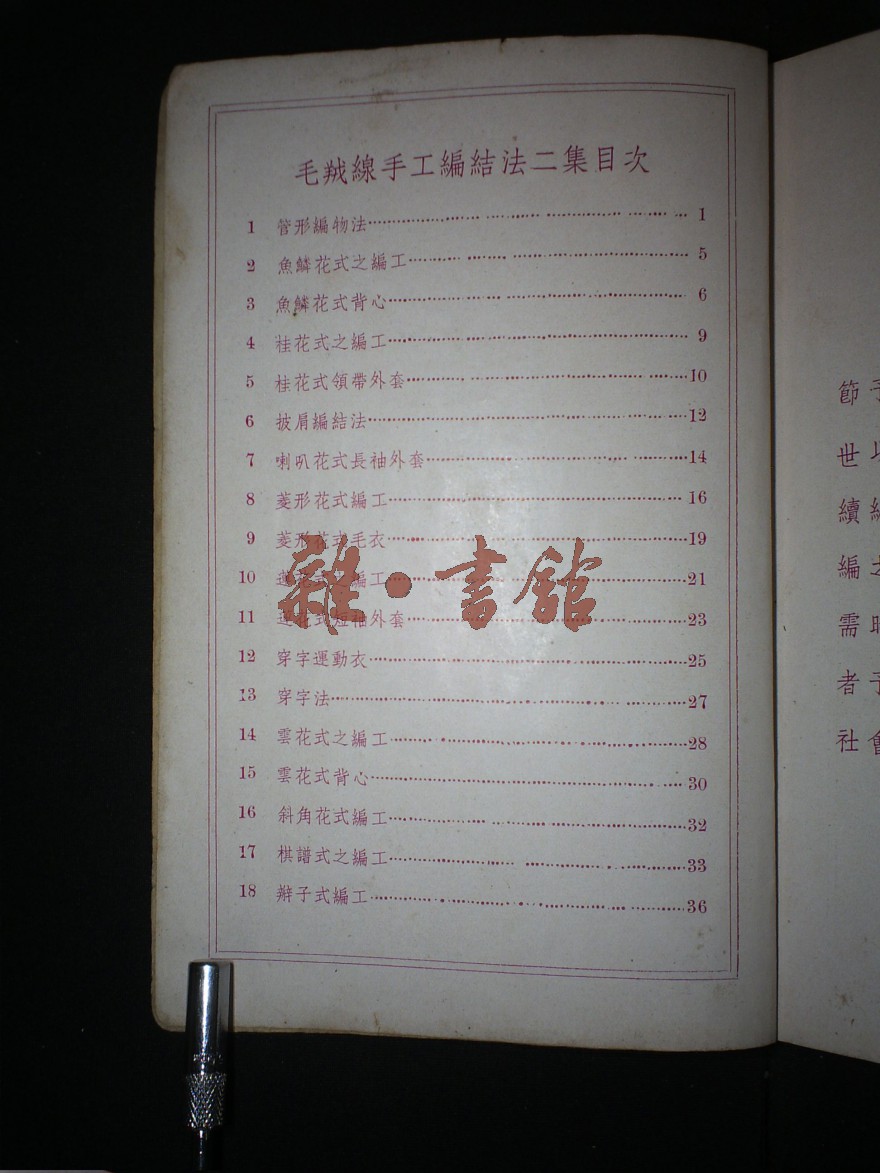 毛羢線手工編結法二集目次
1 管形編物法 1
2 魚鱗花式之編工 5
3 魚鱗花式背心 6
4 桂花式之編工 9
5 桂花式領帶外套 10
6 披肩編結法 12
7 喇叭花式長袖外套 14
8 菱形花式編工 16
9 菱形花式毛衣 19
10 編工 21
11 花式短袖外套 23
12 穿字運動衣 25
13 穿字法 27
14 雲花式之編工 28
15 雲花式背心 30
16 斜角花式編工 32
17 棋譜式之編工 33
18 辮子式編工 36
雜·書館
節
世
續
編
需
者
社會